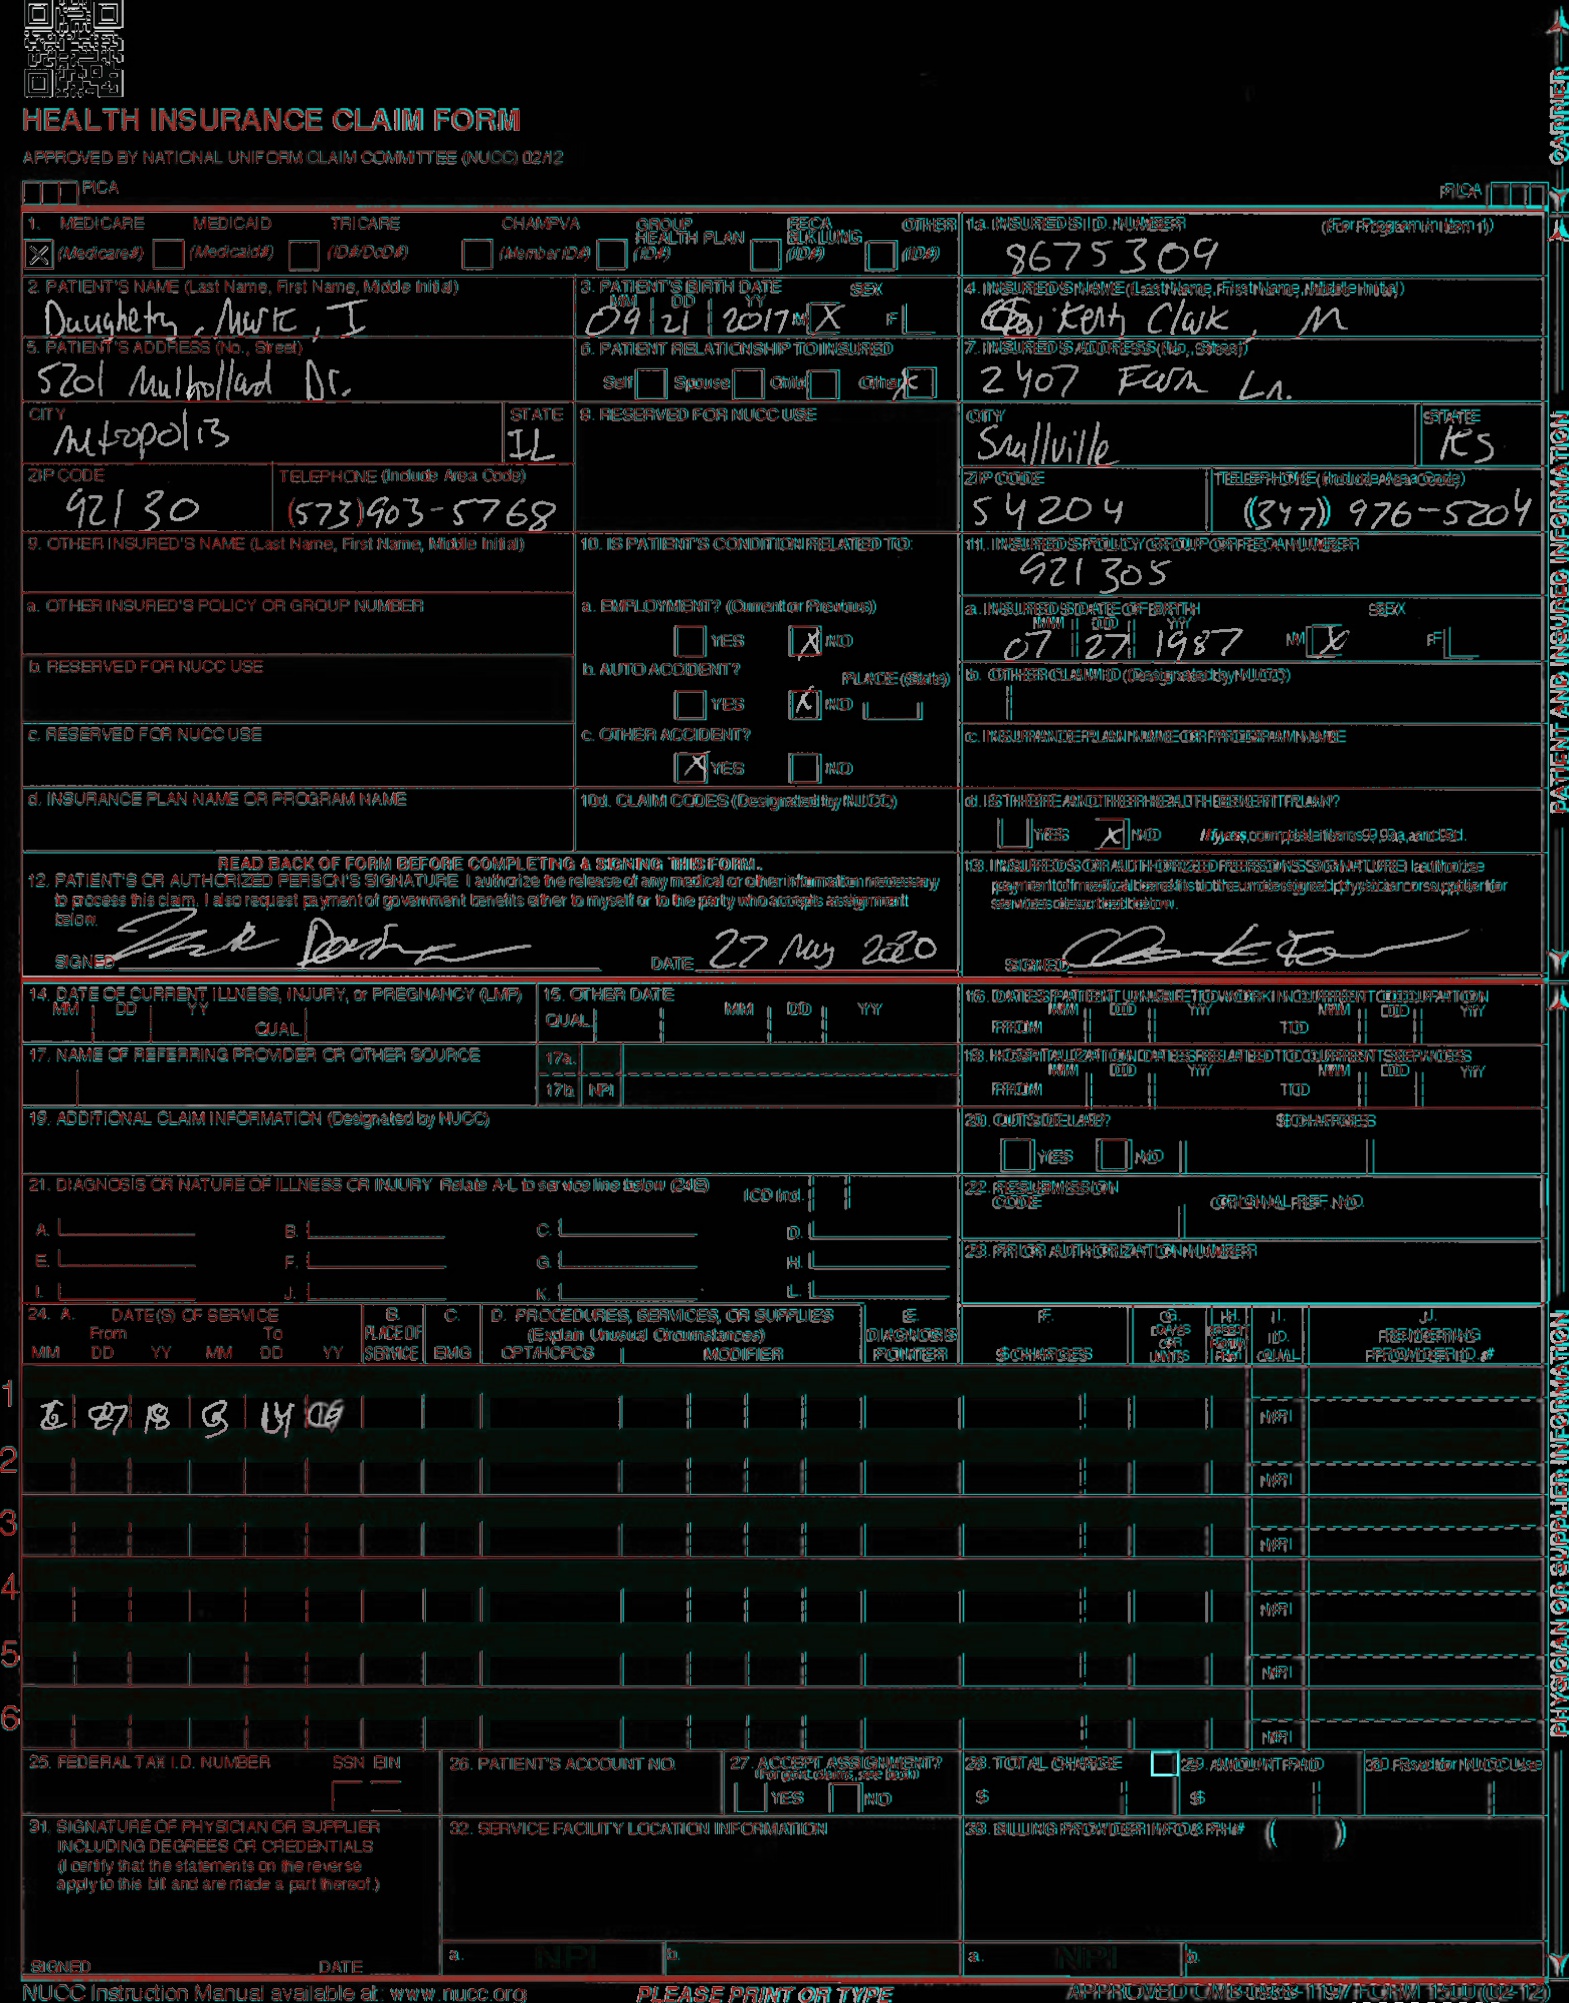 HEALTH INSURANCE CLAIM FORM
APPROVED BY NATIONAL UNIFORM CLAIM COMMITTEE (NUCC) 02/12
PICA PICA
CARRIER
1. MEDICARE MEDICAID TRICARE CHAMPVA GROUP HEALTH PLAN FECA BLK LUNG OTHER
X (Medicare#) (Medicaid#) (ID#/DoD#) (Member ID#) (ID#) (ID#) (ID#)
1a. INSURED'S I.D. NUMBER (For Program in Item 1)
8675309
2. PATIENT'S NAME (Last Name, First Name, Middle Initial)
Daughety, Mark, I
3. PATIENT'S BIRTH DATE SEX
MM DD YY
09 21 2017 M X F
4. INSURED'S NAME (Last Name, First Name, Middle Initial)
Kent, Clark, M
5. PATIENT'S ADDRESS (No., Street)
5201 Mulhollad Dr.
6. PATIENT RELATIONSHIP TO INSURED
Self Spouse Child Other X
7. INSURED'S ADDRESS (No., Street)
2407 Farm Ln.
CITY STATE
Metropolis IL
8. RESERVED FOR NUCC USE
CITY STATE
Smallville KS
ZIP CODE TELEPHONE (Include Area Code)
92130 (573) 903-5768
ZIP CODE TELEPHONE (Include Area Code)
54204 (347) 976-5204
9. OTHER INSURED'S NAME (Last Name, First Name, Middle Initial)
10. IS PATIENT'S CONDITION RELATED TO:
11. INSURED'S POLICY GROUP OR FECA NUMBER
921305
a. OTHER INSURED'S POLICY OR GROUP NUMBER
a. EMPLOYMENT? (Current or Previous)
YES X NO
a. INSURED'S DATE OF BIRTH SEX
MM DD YY
07 27 1987 M X F
b. RESERVED FOR NUCC USE
b. AUTO ACCIDENT? PLACE (State)
YES X NO
b. OTHER CLAIM ID (Designated by NUCC)
c. RESERVED FOR NUCC USE
c. OTHER ACCIDENT?
X YES NO
c. INSURANCE PLAN NAME OR PROGRAM NAME
d. INSURANCE PLAN NAME OR PROGRAM NAME
10d. CLAIM CODES (Designated by NUCC)
d. IS THERE ANOTHER HEALTH BENEFIT PLAN?
YES X NO If yes, complete items 9, 9a, and 9d.
READ BACK OF FORM BEFORE COMPLETING & SIGNING THIS FORM.
12. PATIENT'S OR AUTHORIZED PERSON'S SIGNATURE I authorize the release of any medical or other information necessary
to process this claim. I also request payment of government benefits either to myself or to the party who accepts assignment
below.
SIGNED DATE 22 May 2020
13. INSURED'S OR AUTHORIZED PERSON'S SIGNATURE I authorize
payment of medical benefits to the undersigned physician or supplier for
services described below.
SIGNED
PATIENT AND INSURED INFORMATION
14. DATE OF CURRENT ILLNESS, INJURY, or PREGNANCY (LMP)
MM DD YY QUAL.
15. OTHER DATE
QUAL. MM DD YY
16. DATES PATIENT UNABLE TO WORK IN CURRENT OCCUPATION
MM DD YY MM DD YY
FROM TO
17. NAME OF REFERRING PROVIDER OR OTHER SOURCE
17a.
17b. NPI
18. HOSPITALIZATION DATES RELATED TO CURRENT SERVICES
MM DD YY MM DD YY
FROM TO
19. ADDITIONAL CLAIM INFORMATION (Designated by NUCC)
20. OUTSIDE LAB? $ CHARGES
YES NO
21. DIAGNOSIS OR NATURE OF ILLNESS OR INJURY Relate A-L to service line below (24E) ICD Ind.
A. B. C. D.
E. F. G. H.
I. J. K. L.
22. RESUBMISSION CODE ORIGINAL REF. NO.
23. PRIOR AUTHORIZATION NUMBER
24. A. DATE(S) OF SERVICE From To
MM DD YY MM DD YY
B. PLACE OF SERVICE
C. EMG
D. PROCEDURES, SERVICES, OR SUPPLIES
(Explain Unusual Circumstances)
CPT/HCPCS MODIFIER
E. DIAGNOSIS POINTER
F. $ CHARGES
G. DAYS OR UNITS
H. EPSDT Family Plan
I. ID. QUAL.
J. RENDERING PROVIDER ID. #
1 18 14 NPI
2 NPI
3 NPI
4 NPI
5 NPI
6 NPI
PHYSICIAN OR SUPPLIER INFORMATION
25. FEDERAL TAX I.D. NUMBER SSN EIN
26. PATIENT'S ACCOUNT NO.
27. ACCEPT ASSIGNMENT?
(For govt. claims, see back)
YES NO
28. TOTAL CHARGE
$
29. AMOUNT PAID
$
30. Rsvd for NUCC Use
31. SIGNATURE OF PHYSICIAN OR SUPPLIER
INCLUDING DEGREES OR CREDENTIALS
(I certify that the statements on the reverse
apply to this bill and are made a part thereof.)
SIGNED DATE
32. SERVICE FACILITY LOCATION INFORMATION
a. NPI b.
33. BILLING PROVIDER INFO & PH # ( )
a. NPI b.
NUCC Instruction Manual available at: www.nucc.org
PLEASE PRINT OR TYPE
APPROVED OMB-0938-1197 FORM 1500 (02-12)